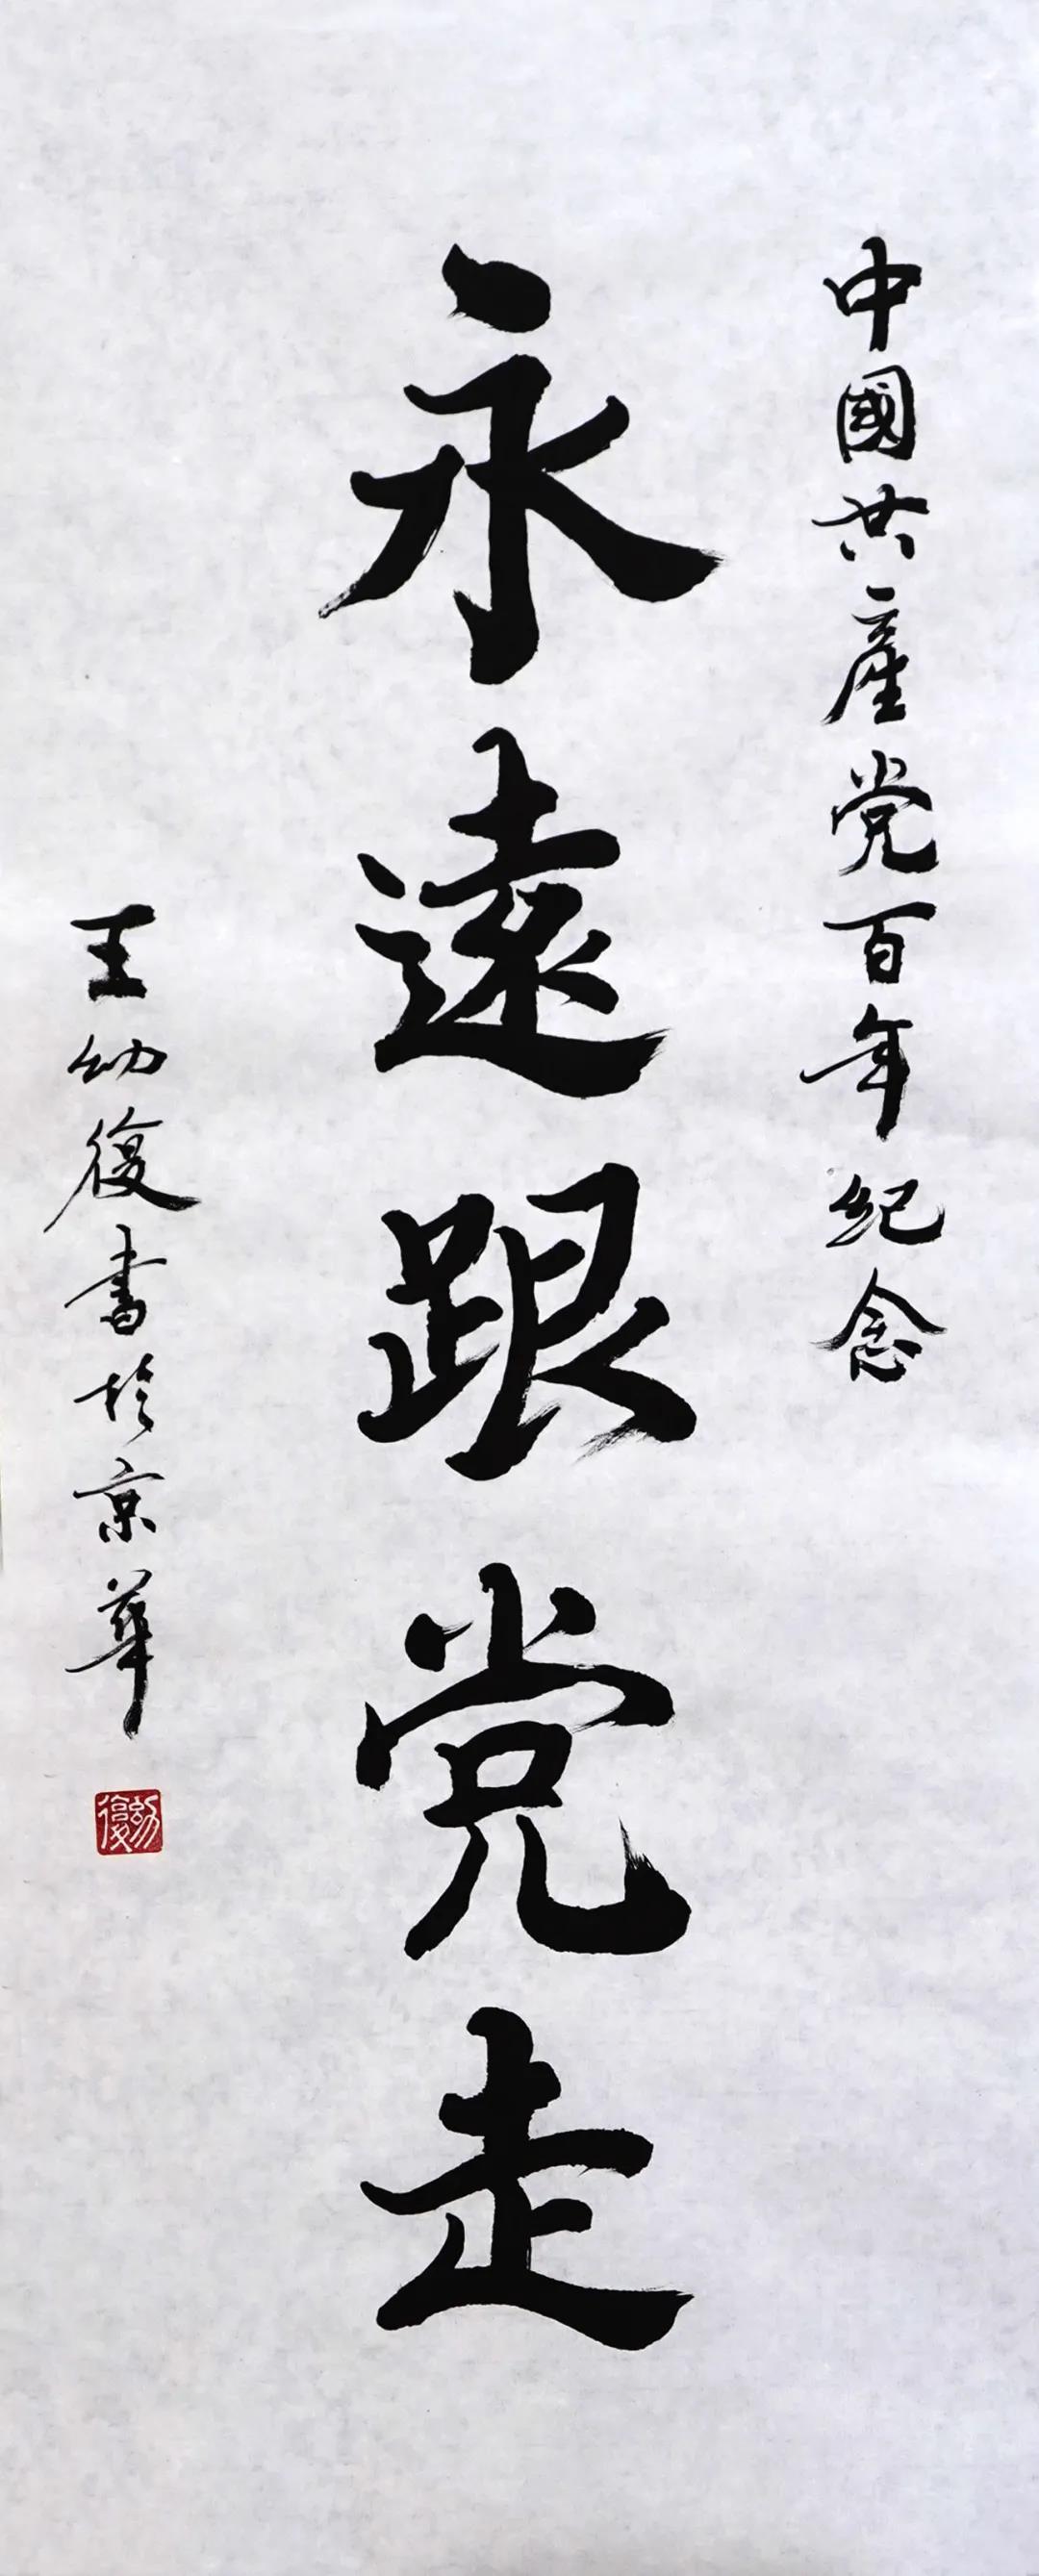 中國共產党百年纪念
永遠跟党走
王幼復書於京華
幼復